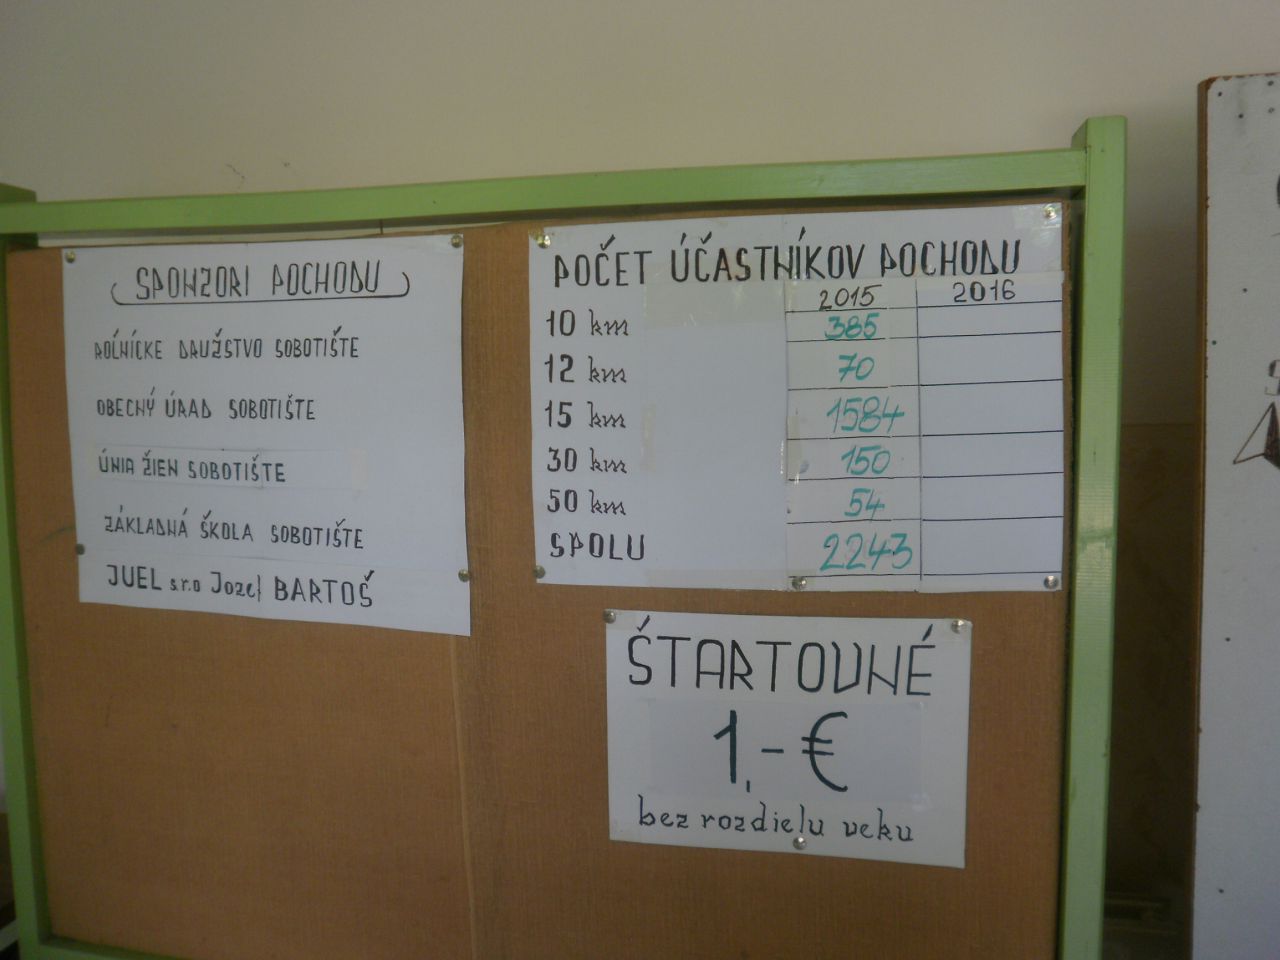 SPONZORI POCHODU
ROĹNÍCKE DRUŽSTVO SOBOTIŠTE
OBECNÝ ÚRAD SOBOTIŠTE
ÚNIA ŽIEN SOBOTIŠTE
ZÁKLADNÁ ŠKOLA SOBOTIŠTE
JUEL s.r.o Jozef BARTOŠ
POČET ÚČASTNÍKOV POCHODU
2015 2016
10 km 385
12 km 70
15 km 1584
30 km 150
50 km 54
SPOLU 2243
ŠTARTOVNÉ
1,- €
bez rozdielu veku